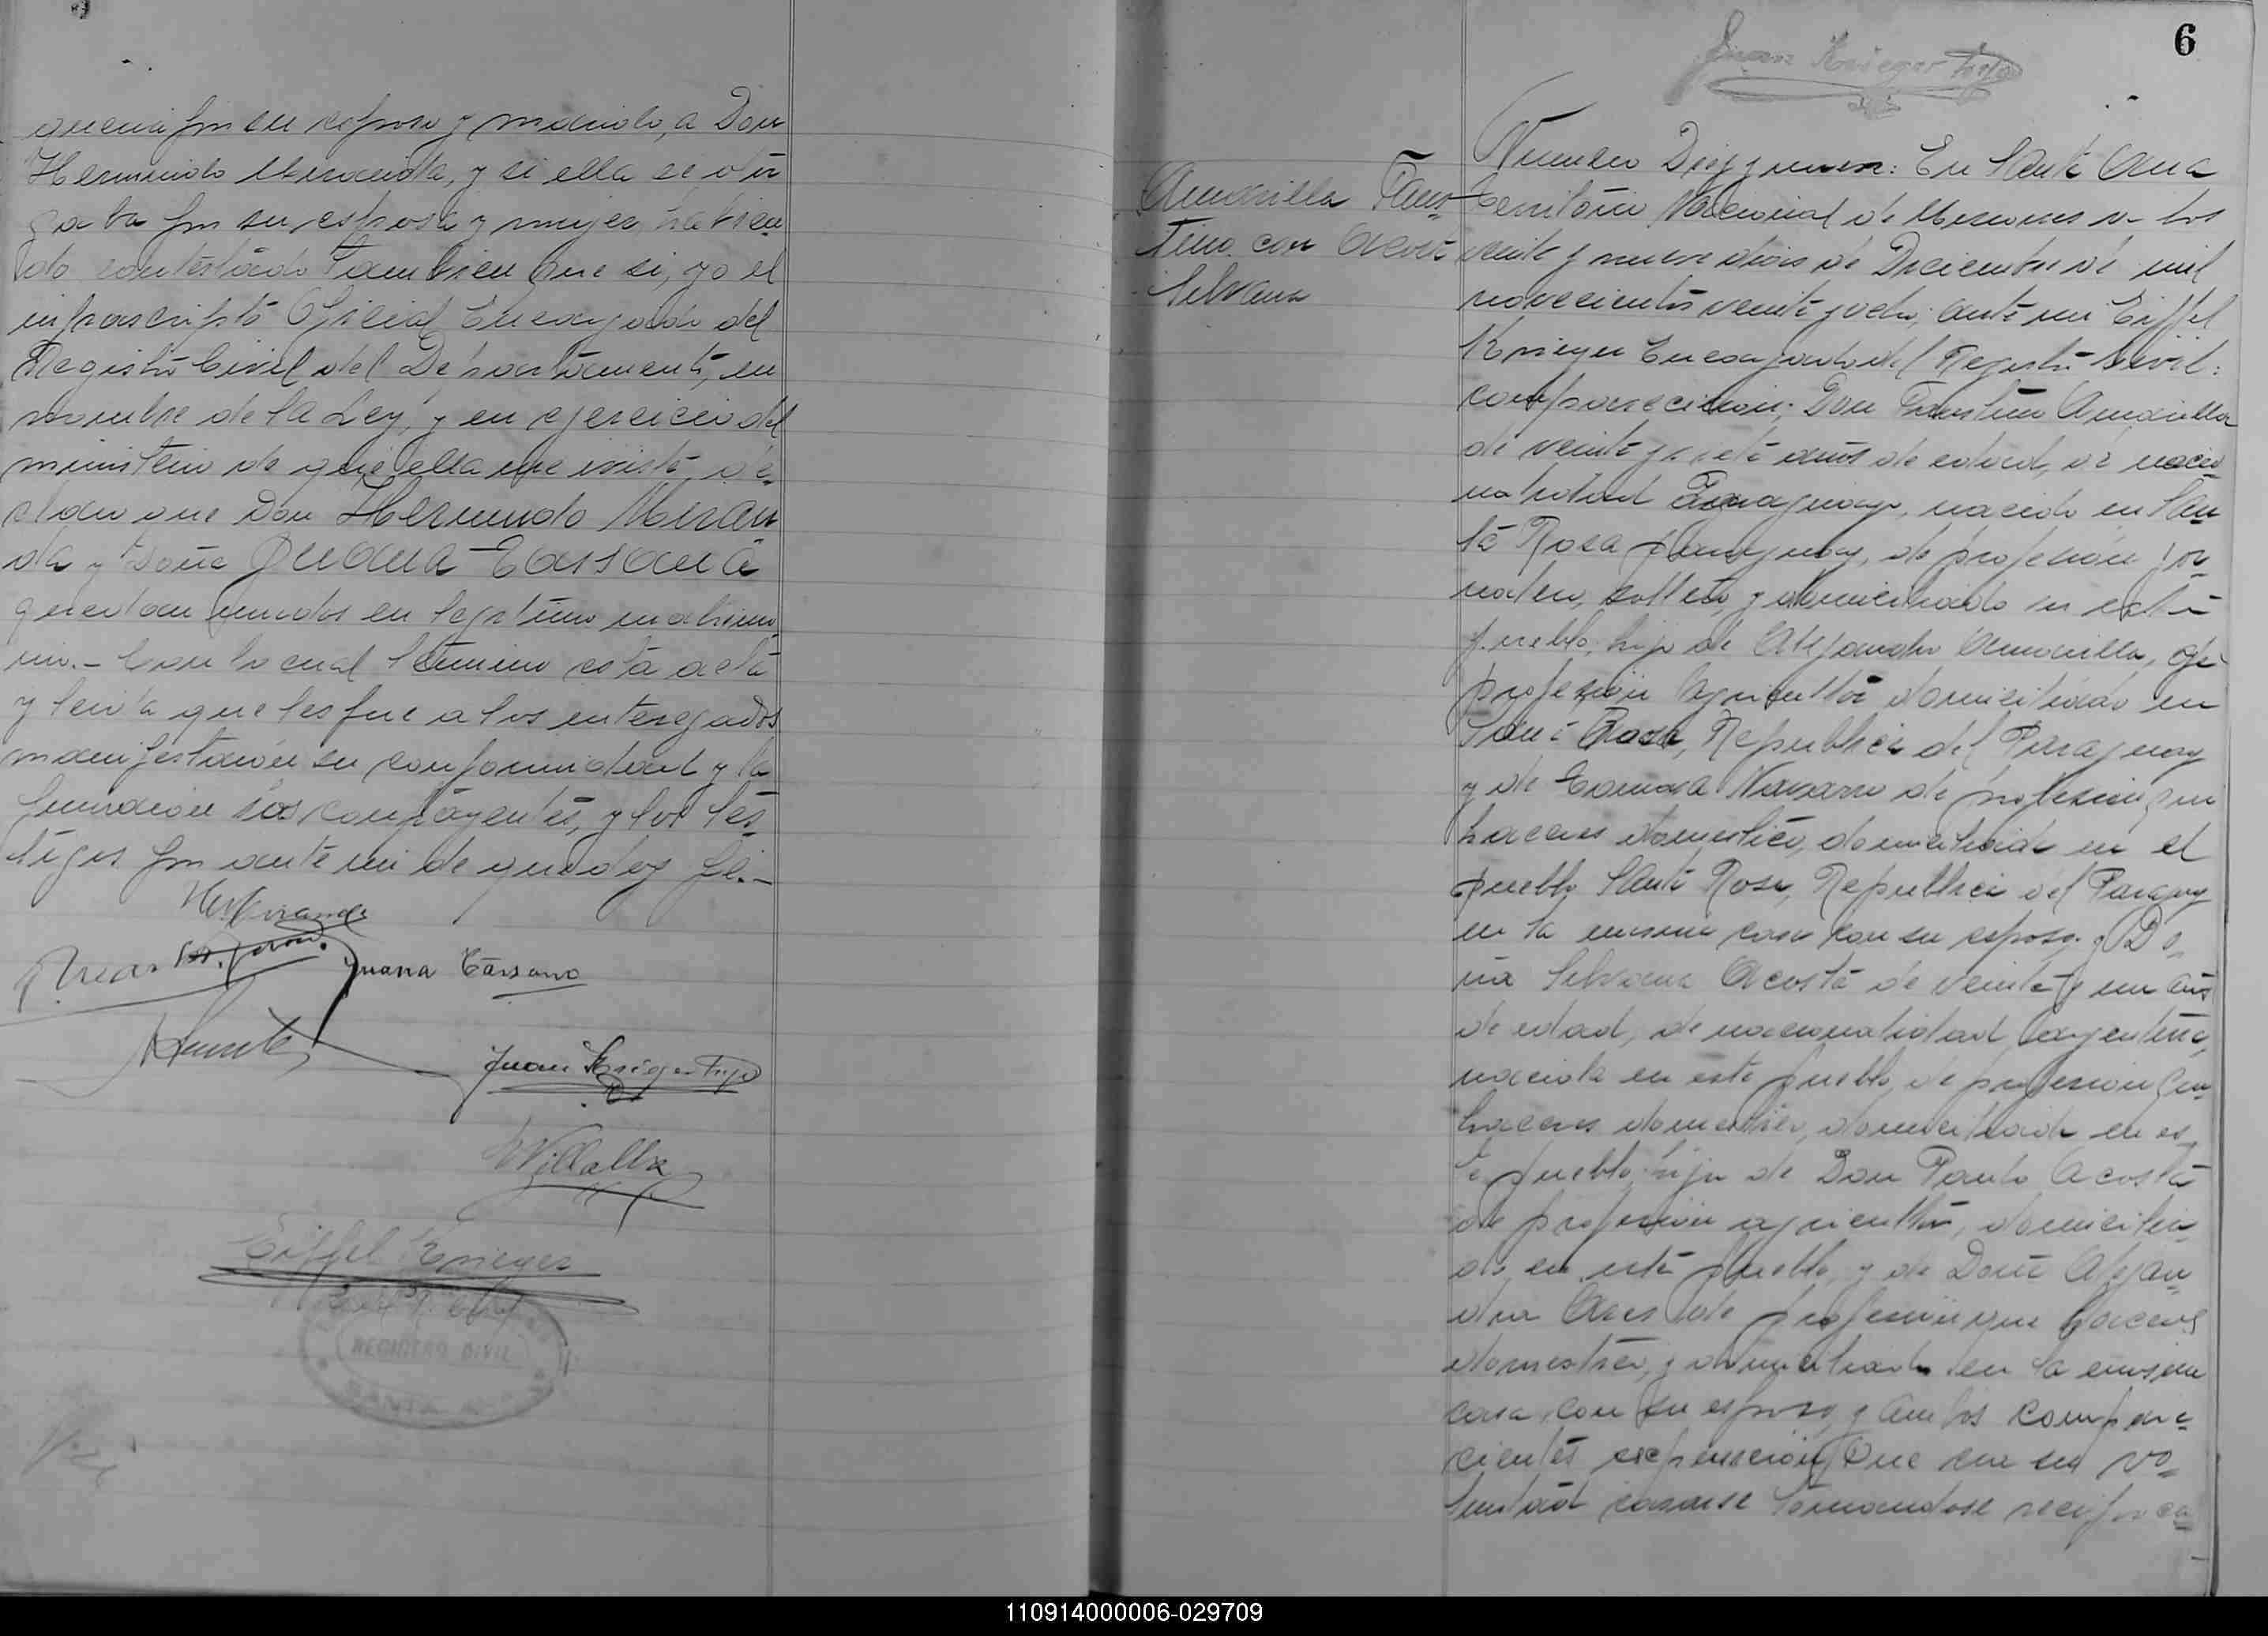 queria por su esposo y marido, a Don
Hermindo Miranda, y si ella se otor
gaba por su esposa y mujer, habien
do contestado tambien que si, yo el
infrascripto Oficial Encargado del
Registro Civil del Departamento, en
nombre de la Ley, y en ejercicio del
ministerio de que ella me inviste, de-
claro que Don Hermindo Miran
da y Doña Juana Cassana
quedan unidos en legitimo matrimo
nio.- Con lo cual termino esta acta
y leida que les fue a los interezados
manifestaron su conformidad y la
firmaron los contrayentes, y los tes-
tigos por ante mi de que doy fé.-
Juana Cassano
Juan Krieger hijo
Villalba
Eiffel Krieger
REGISTRO CIVIL
SANTA
6
Juan Krieger hijo
Amarilla Faus-
tino con Acosta
Silvana
Numero Diez y nueve: En Santa Ana
Territorio Nacional de Misiones a los
veinte y nueve dias de Diciembre de mil
novecientos veinte y ocho; ante mi Eiffel
Krieger Encargado del Registro Civil:
comparecieron; Don Faustino Amarilla
de veinte y siete años de edad, de nacio
nalidad Paraguayo, nacido en San
ta Rosa Paraguay, de profesión jor
nalero, soltero y domiciliado en este
pueblo; hijo de Alejandro Amarilla, de
profesión Agricultor domiciliado en
Santa Rosa, Republica del Paraguay
y de Tomasa Navarro de profesion que
haceres domestico, domiciliada en el
pueblo Santa Rosa, Republica del Paraguay
en la misma casa con su esposo. y Do-
ña Silvana Acosta de veinte y un años
de edad, de nacionalidad argentina,
nacida en este pueblo, de profesion que
haceres domestico, domiciliada en es-
te pueblo; hija de Don Paulo Acosta
de profesión agricultor, domicilia-
do en este pueblo, y de Doña Alejan-
dra de profesión que haceres
domestico, y domiciliada en la misma
casa con su esposo, y ambos compare-
cientes expusieron; Que era su vo-
luntad casarse tomandose reciproca-
110914000006-029709